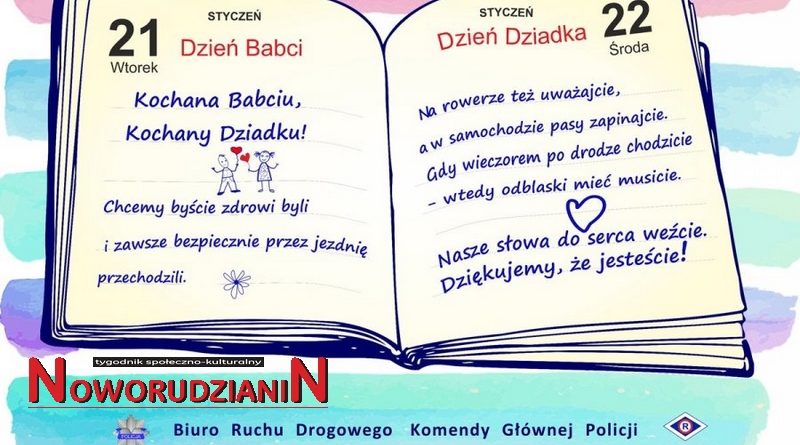 STYCZEŃ
21
Wtorek
Dzień Babci
Kochana Babciu,
Kochany Dziadku!
Chcemy byście zdrowi byli
i zawsze bezpiecznie przez jezdnię
przechodzili.
STYCZEŃ
22
Środa
Dzień Dziadka
Na rowerze też uważajcie,
a w samochodzie pasy zapinajcie.
Gdy wieczorem po drodze chodzicie
- wtedy odblaski mieć musicie.
Nasze słowa do serca weźcie.
Dziękujemy, że jesteście!
tygodnik społeczno-kulturalny
NOWORUDZIANIN
POLICJA
Biuro Ruchu Drogowego Komendy Głównej Policji
R